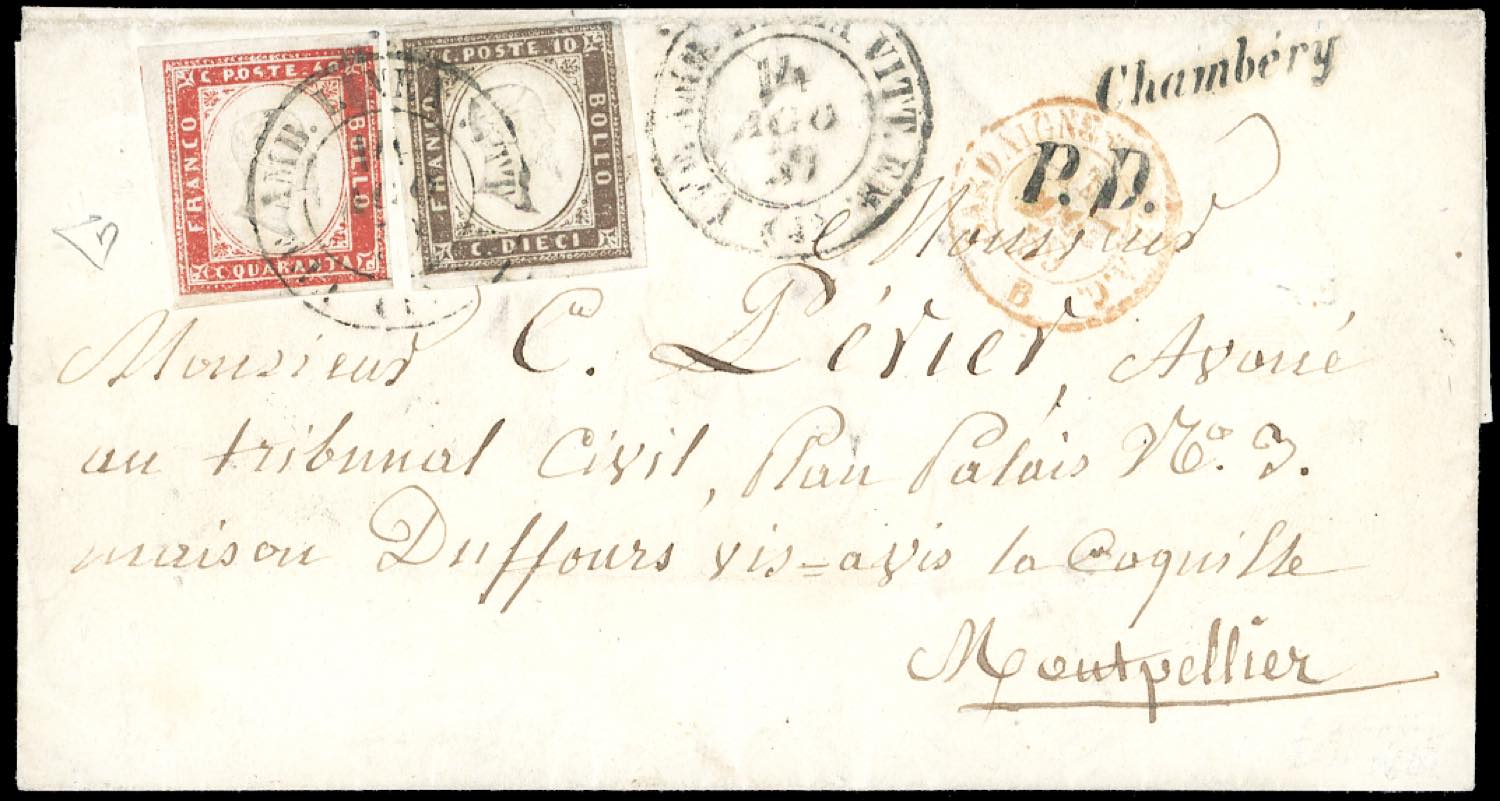 C. POSTE. 40
FRANCO
BOLLO
C. QUARANTA
C. POSTE. 10
FRANCO
BOLLO
C. DIECI
AMB.
VITT. EM.
14
AGO
Chambéry
P.D.
Monsieur
Monsieur C. Périer, Avoué
au tribunal Civil, Plan Palais No. 3.
maison Duffours vis=avis la Coquille
Montpellier